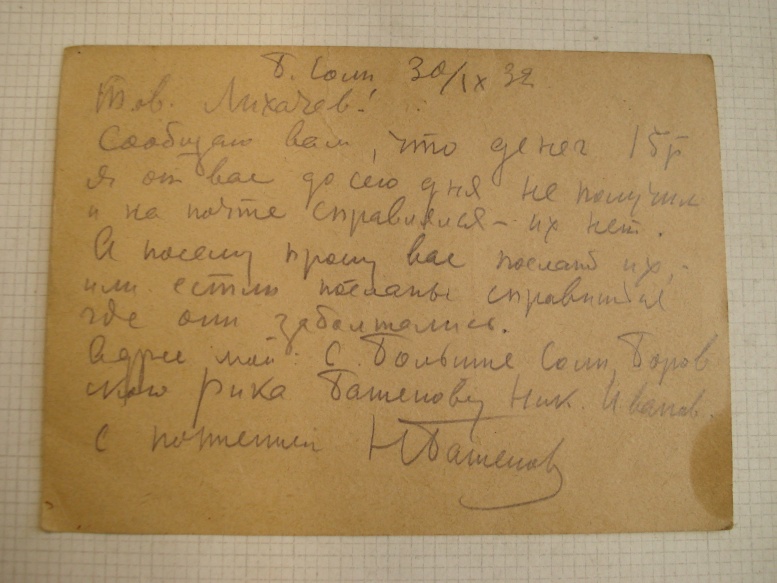 Б. Соли 30/IX 32
Тов. Лихачев!
Сообщаю вам, что денег 15р
я от вас до сего дня не получил
и на почте справлялся – их нет.
А посему прошу вас послать их, –
или естли посланы справится
где они заболтались.
Адрес мой: С. Большие Соли, Боров
ского Рика Баженову Ник. Иванов.
С почтением НБаженов